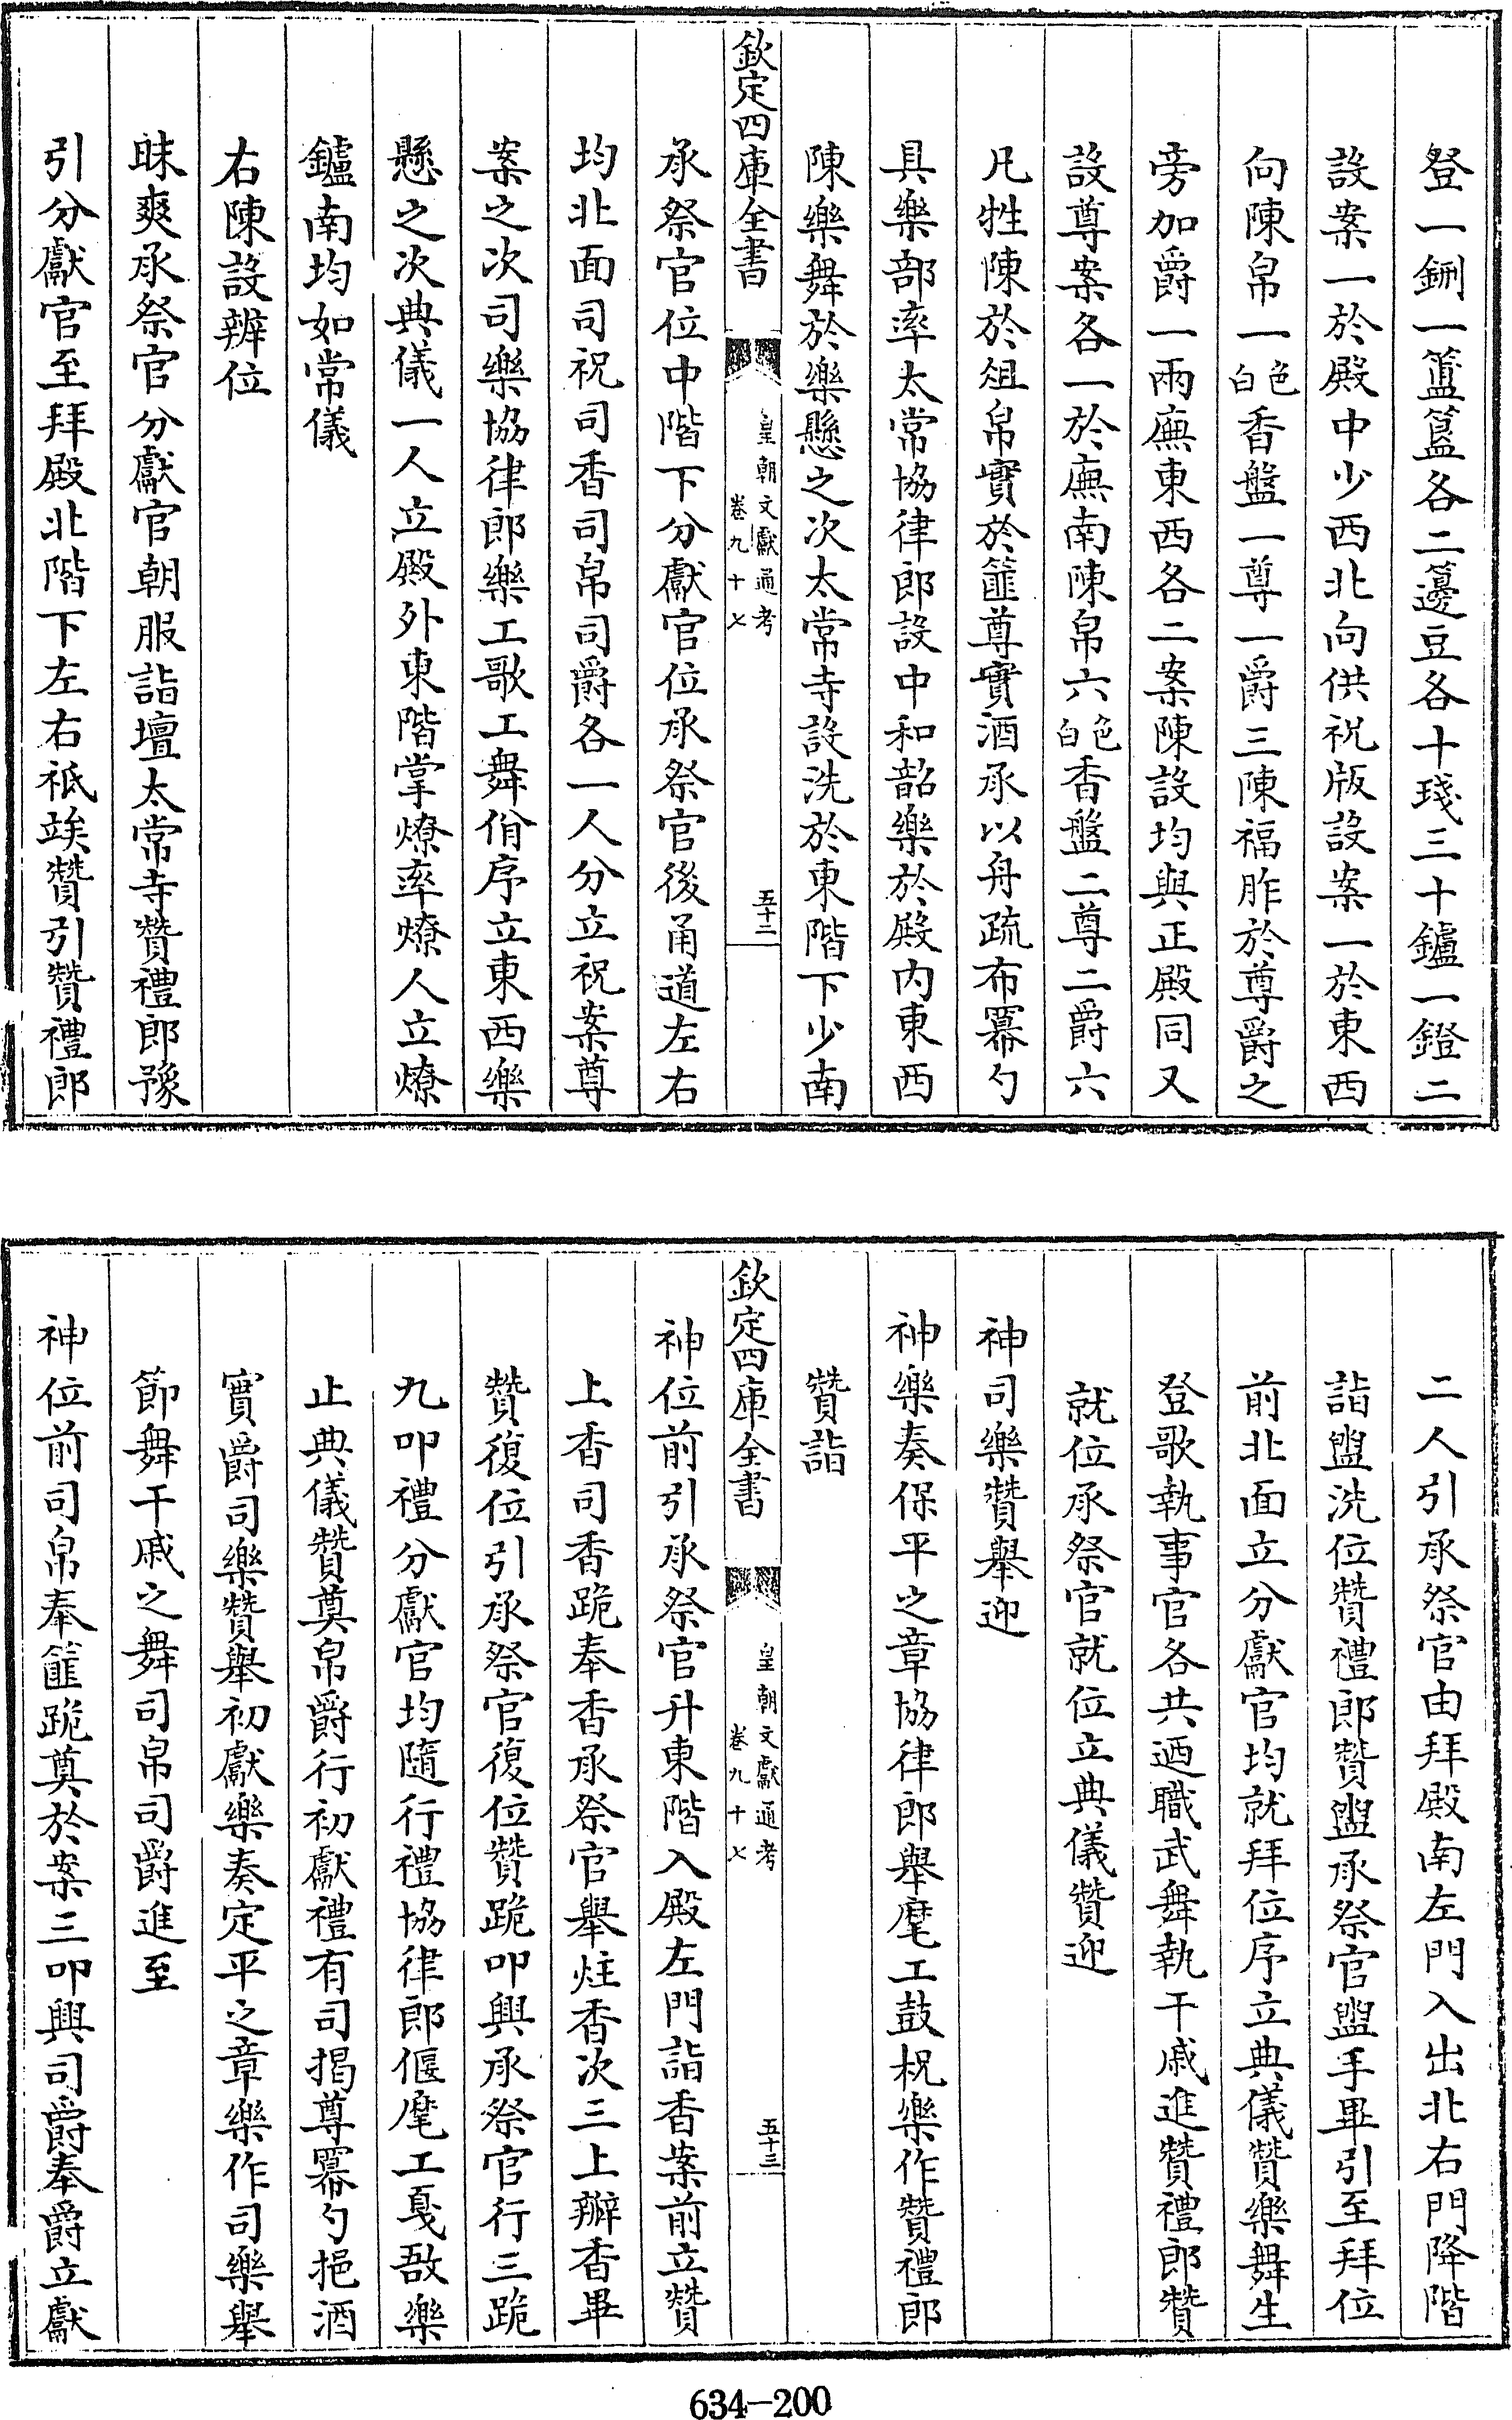 登一鉶一簠簋各二籩豆各十琖三十鑪一鐙二
設案一於殿中少西北向供祝版設案一於東西
向陳帛一白色香盤一尊一爵三陳福胙於尊爵之
旁加爵一兩廡東西各二案陳設均與正殿同又
設尊案各一於廡南陳帛六白色香盤二尊二爵六
凡牲陳於俎帛實於篚尊實酒承以舟疏布冪勺
具樂部率太常協律郎設中和韶樂於殿内東西
陳樂舞於樂懸之次太常寺設洗於東階下少南
欽定四庫全書 皇朝文獻通考 卷九十七 五十二
承祭官位中階下分獻官位承祭官後甬道左右
均北面司祝司香司帛司爵各一人分立祝案尊
案之次司樂協律郎樂工歌工舞佾序立東西樂
懸之次典儀一人立殿外東階掌燎率燎人立燎
鑪南均如常儀
右陳設辨位
昧爽承祭官分獻官朝服詣壇太常寺贊禮郎豫
引分獻官至拜殿北階下左右祗竢贊引贊禮郎
二人引承祭官由拜殿南左門入出北右門降階
詣盥洗位贊禮郎贊盥承祭官盥手畢引至拜位
前北面立分獻官均就拜位序立典儀贊樂舞生
登歌執事官各共迺職武舞執干戚進贊禮郎贊
就位承祭官就位立典儀贊迎
神司樂贊舉迎
神樂奏保平之章協律郎舉麾工鼓柷樂作贊禮郎
贊詣
欽定四庫全書 皇朝文獻通考 卷九十七 五十三
神位前引承祭官升東階入殿左門詣香案前立贊
上香司香跪奉香承祭官舉炷香次三上瓣香畢
贊復位引承祭官復位贊跪叩興承祭官行三跪
九叩禮分獻官均隨行禮協律郎偃麾工戛敔樂
止典儀贊奠帛爵行初獻禮有司揭尊冪勺挹酒
實爵司樂贊舉初獻樂奏定平之章樂作司樂舉
節舞干戚之舞司帛司爵進至
神位前司帛奉篚跪奠於案三叩興司爵奉爵立獻
634-200